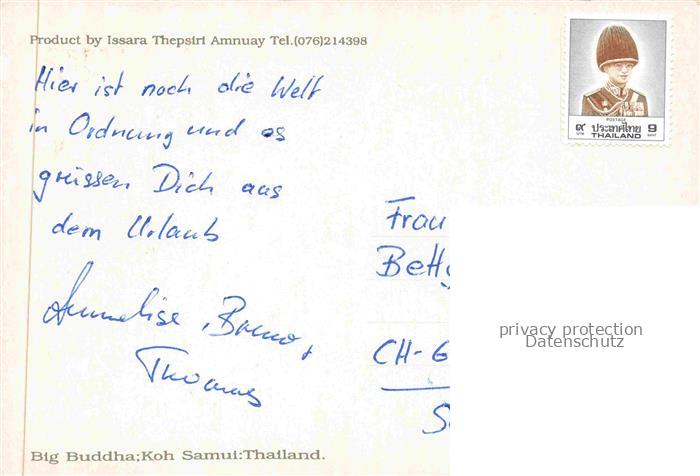 Product by Issara Thepsiri Amnuay Tel.(076)214398
Hier ist noch die Welt
in Ordnung und es
grüssen Dich aus
dem Urlaub
Annelise, Bruno +
Thomas
POSTAGE
๙ ประเทศไทย 9
บาท THAILAND BAHT
Frau
Betty
CH-6
privacy protection
Datenschutz
Big Buddha;Koh Samui:Thailand.